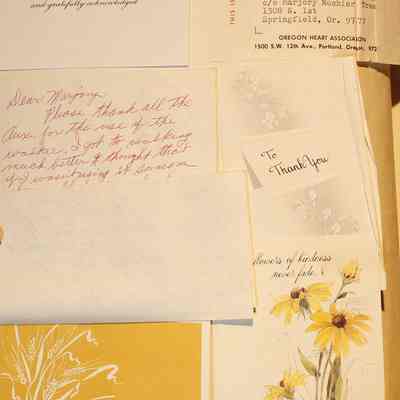 and gratefully acknowledged
THIS IS
c/o Marjory
1308 S. 1st
Springfield, Or. 9777
OREGON HEART ASSOCIATION
1500 S.W. 12th Ave., Portland, Oregon, 972
Dear Marjory,
Please thank all the
Aux. for the use of the
walker. I got to walking
much better & thought that
if I wasn't using it someone
To
Thank You
flowers of kindness
never fade.